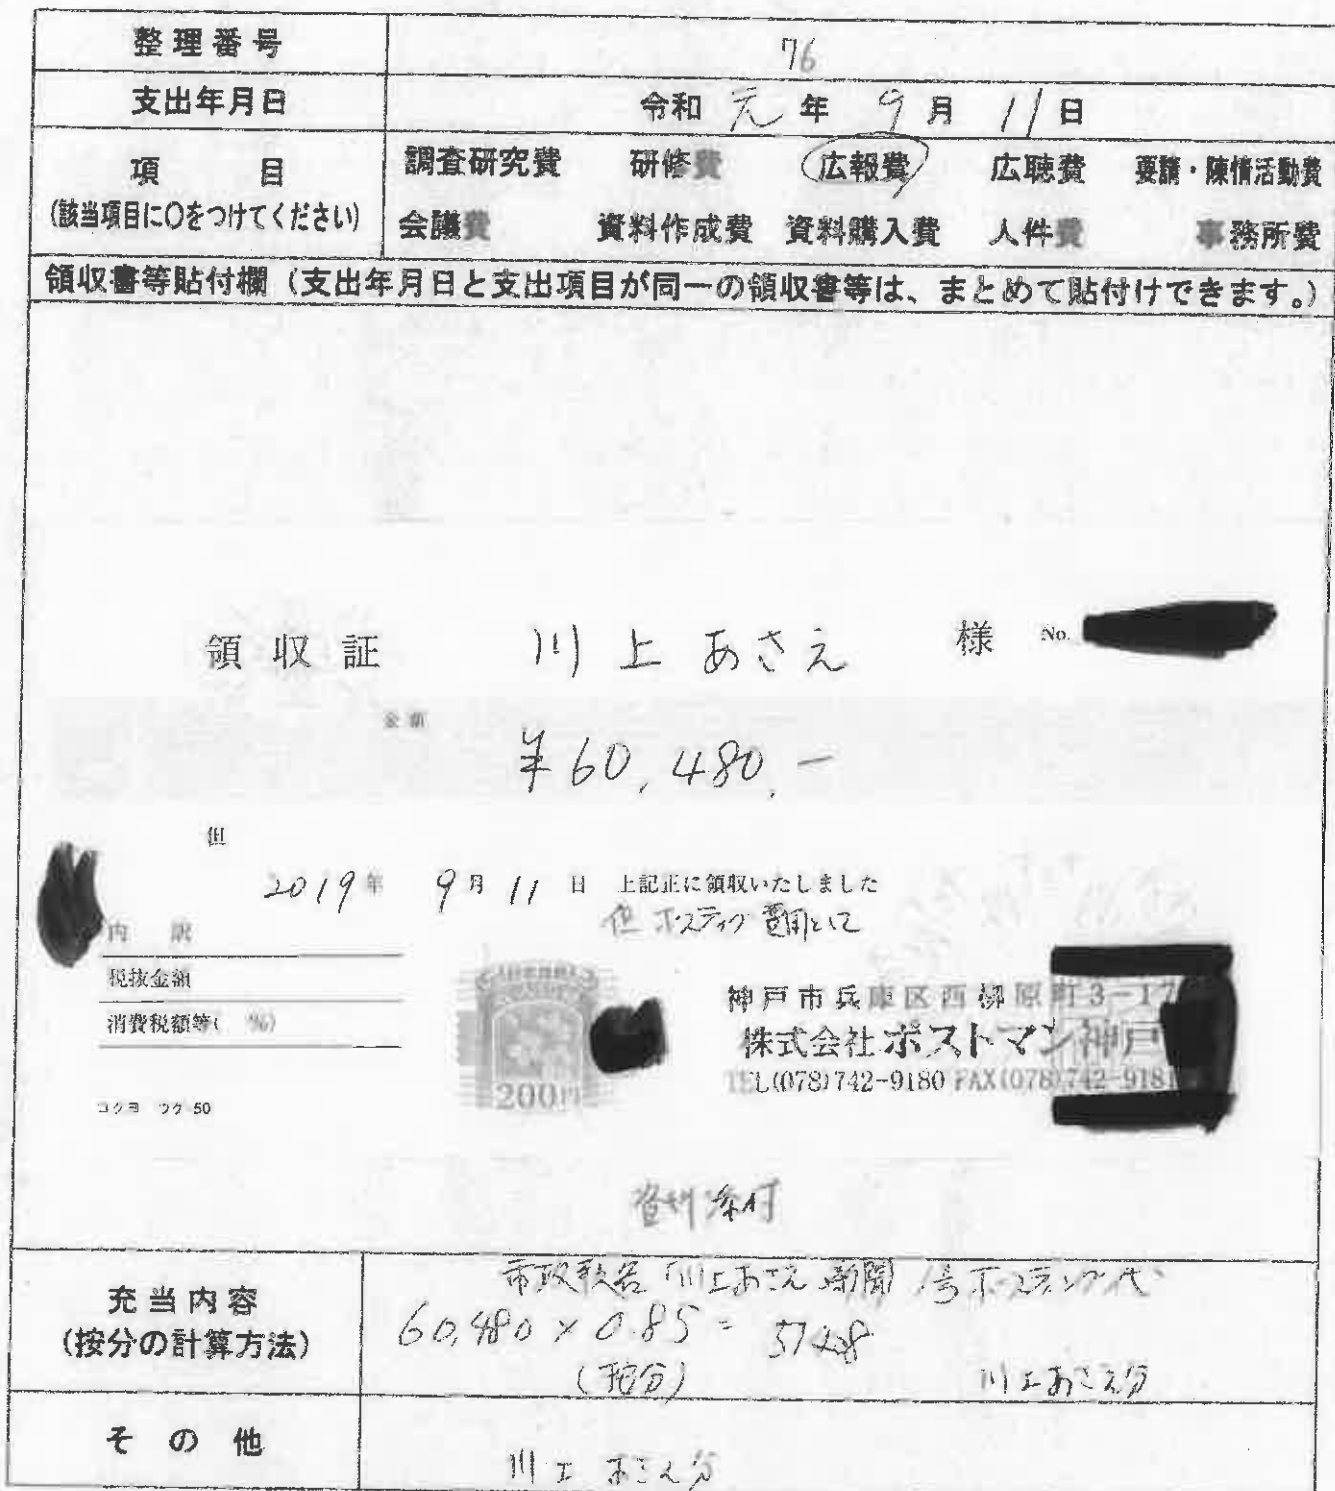 整理番号 76
支出年月日 令和 元 年 9 月 11 日
項目 調査研究費 研修費 広報費 広聴費 要請・陳情活動費
(該当項目に○をつけてください) 会議費 資料作成費 資料購入費 人件費 事務所費
領収書等貼付欄（支出年月日と支出項目が同一の領収書等は、まとめて貼付けできます。）
領収証 川上あさえ 様 No.
金額
¥60,480,-
但
2019年 9月 11日 上記正に領収いたしました
但 ポスティング費用として
内訳
税抜金額
消費税額等( %)
200円
神戸市兵庫区西柳原町3-17
株式会社ポストマン神戸
TEL(078)742-9180 FAX(078)742-918
コクヨ ウケ-50
資料添付
充当内容 市政報告「川上あさえ新聞」1号ポスティング代
(按分の計算方法) 60,480×0.85=
(按分) 川上あさえ分
その他
川上あさえ分